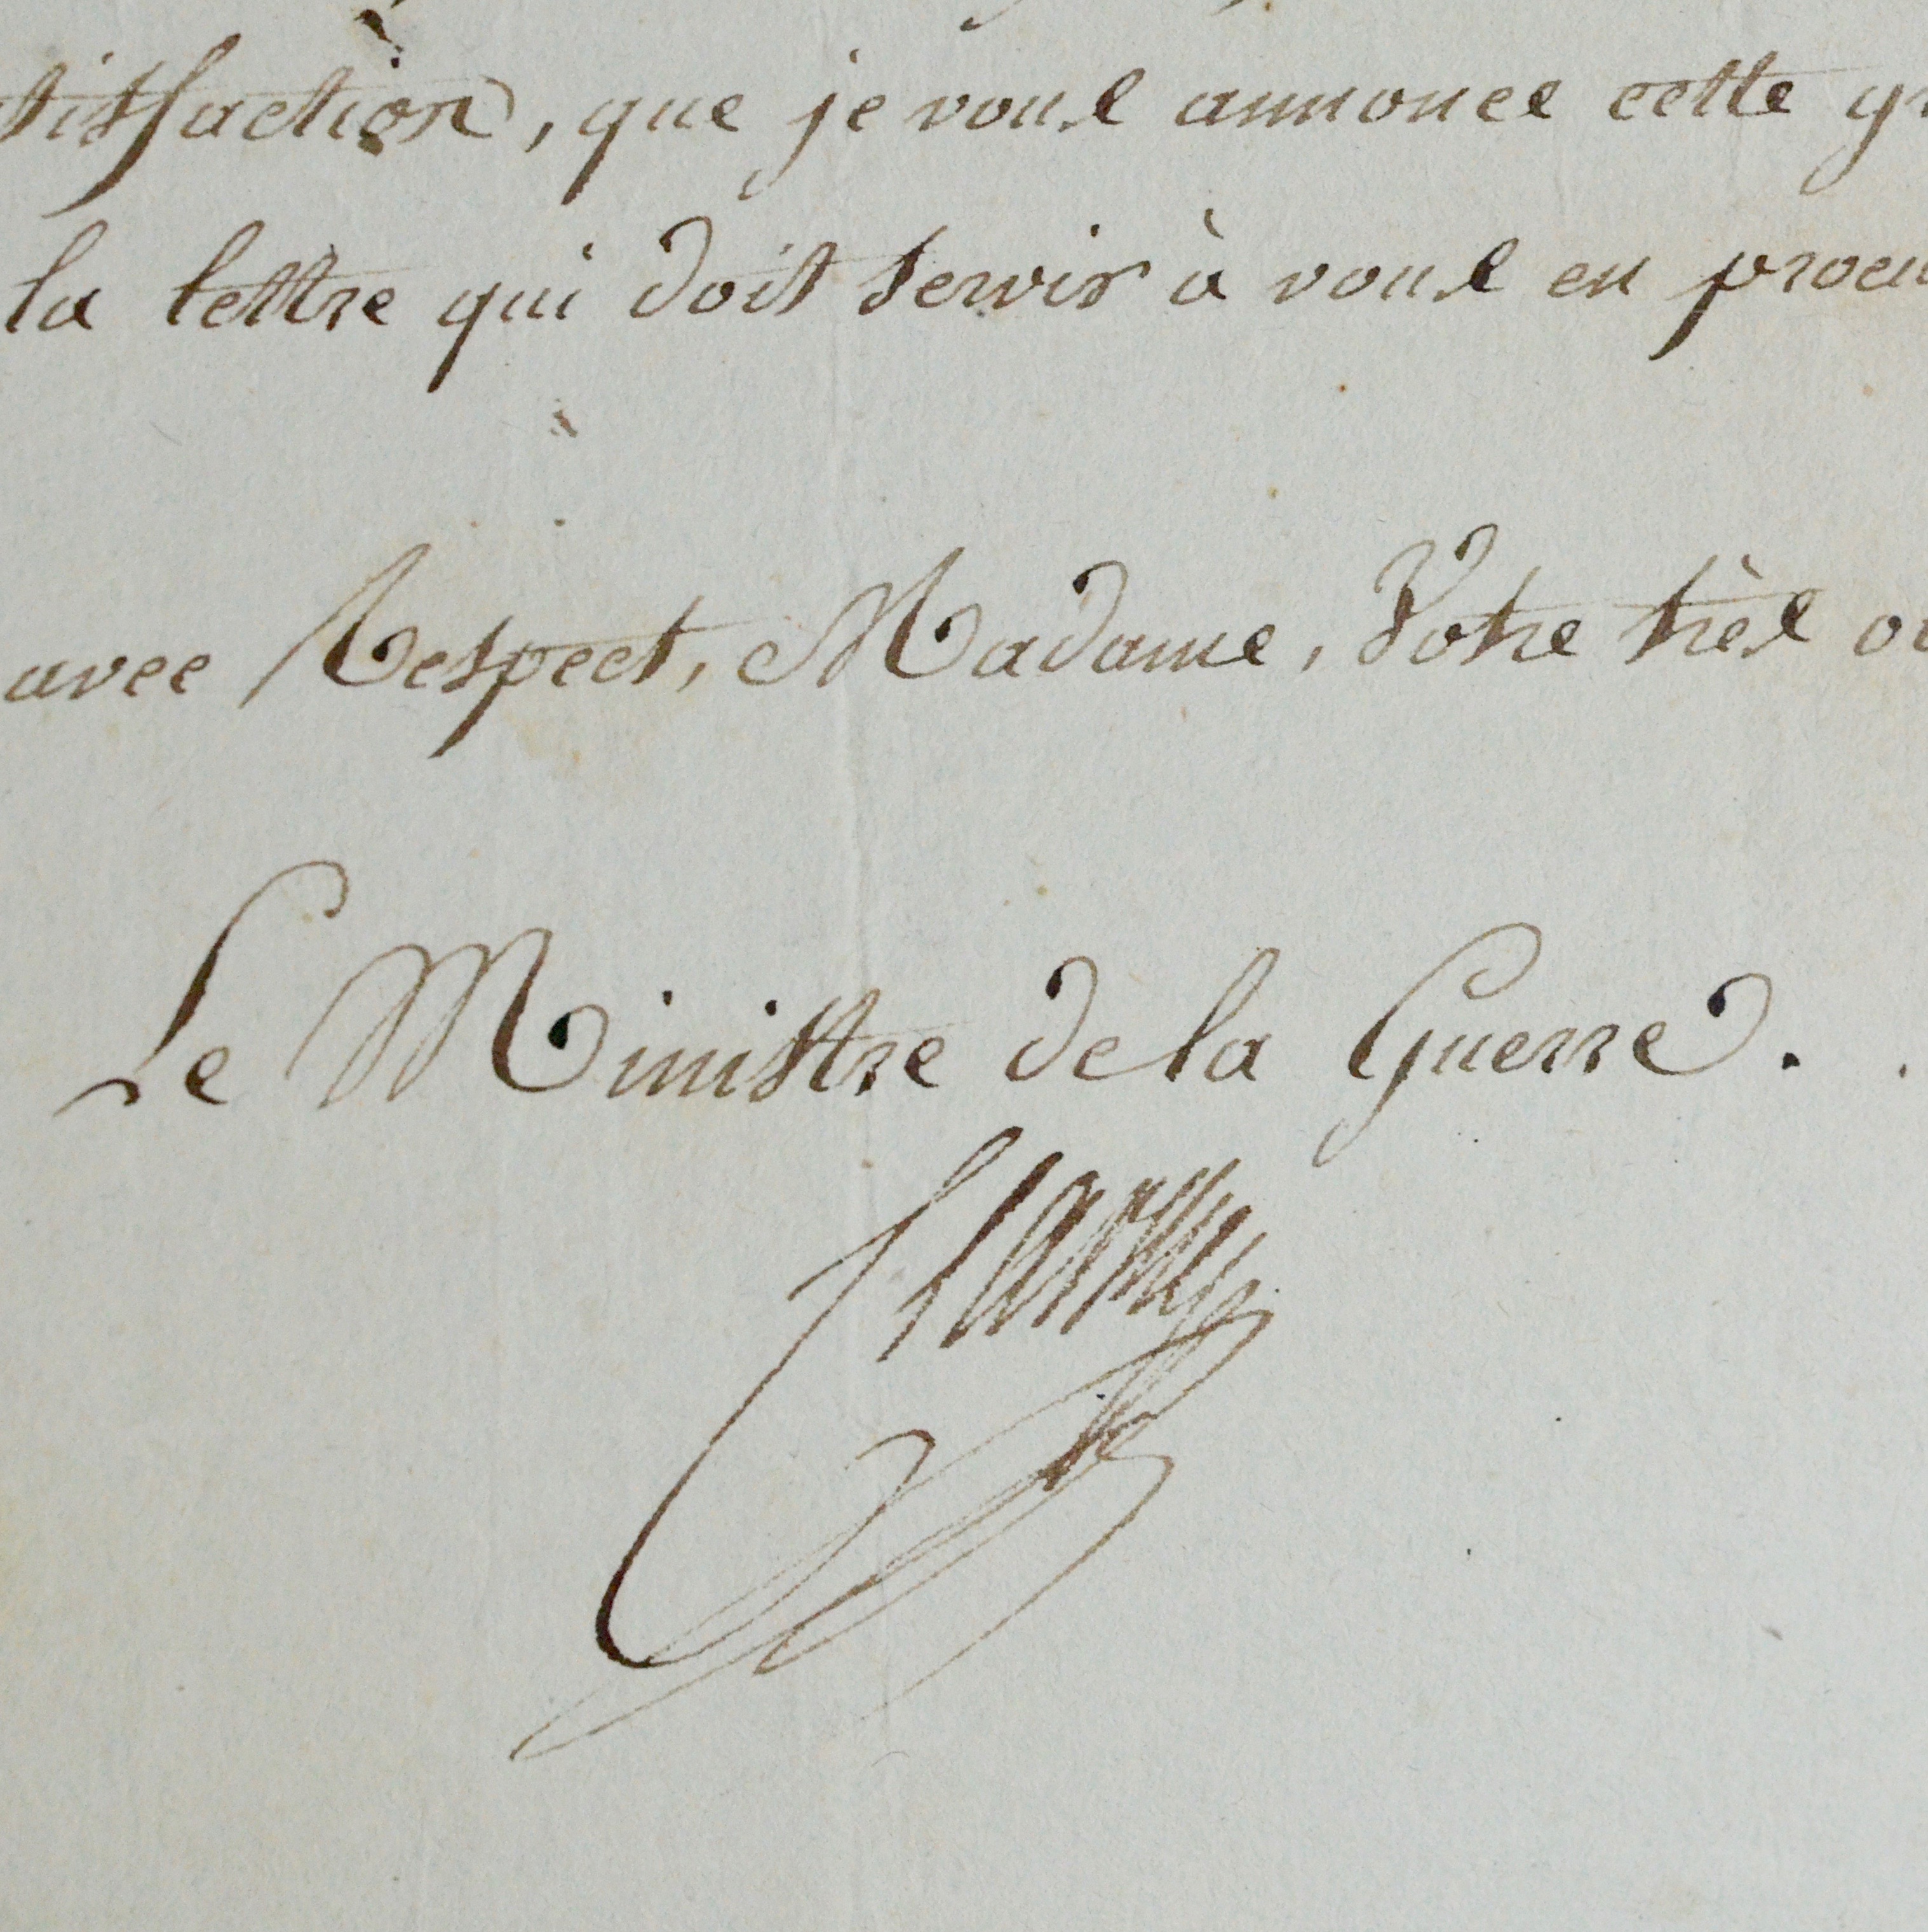 tisfaction, que je vous annonce cette gr
la lettre qui doit servir à vous en procu
avec Respect, Madame, Votre très ob
Le Ministre de la Guerre.
Clarke